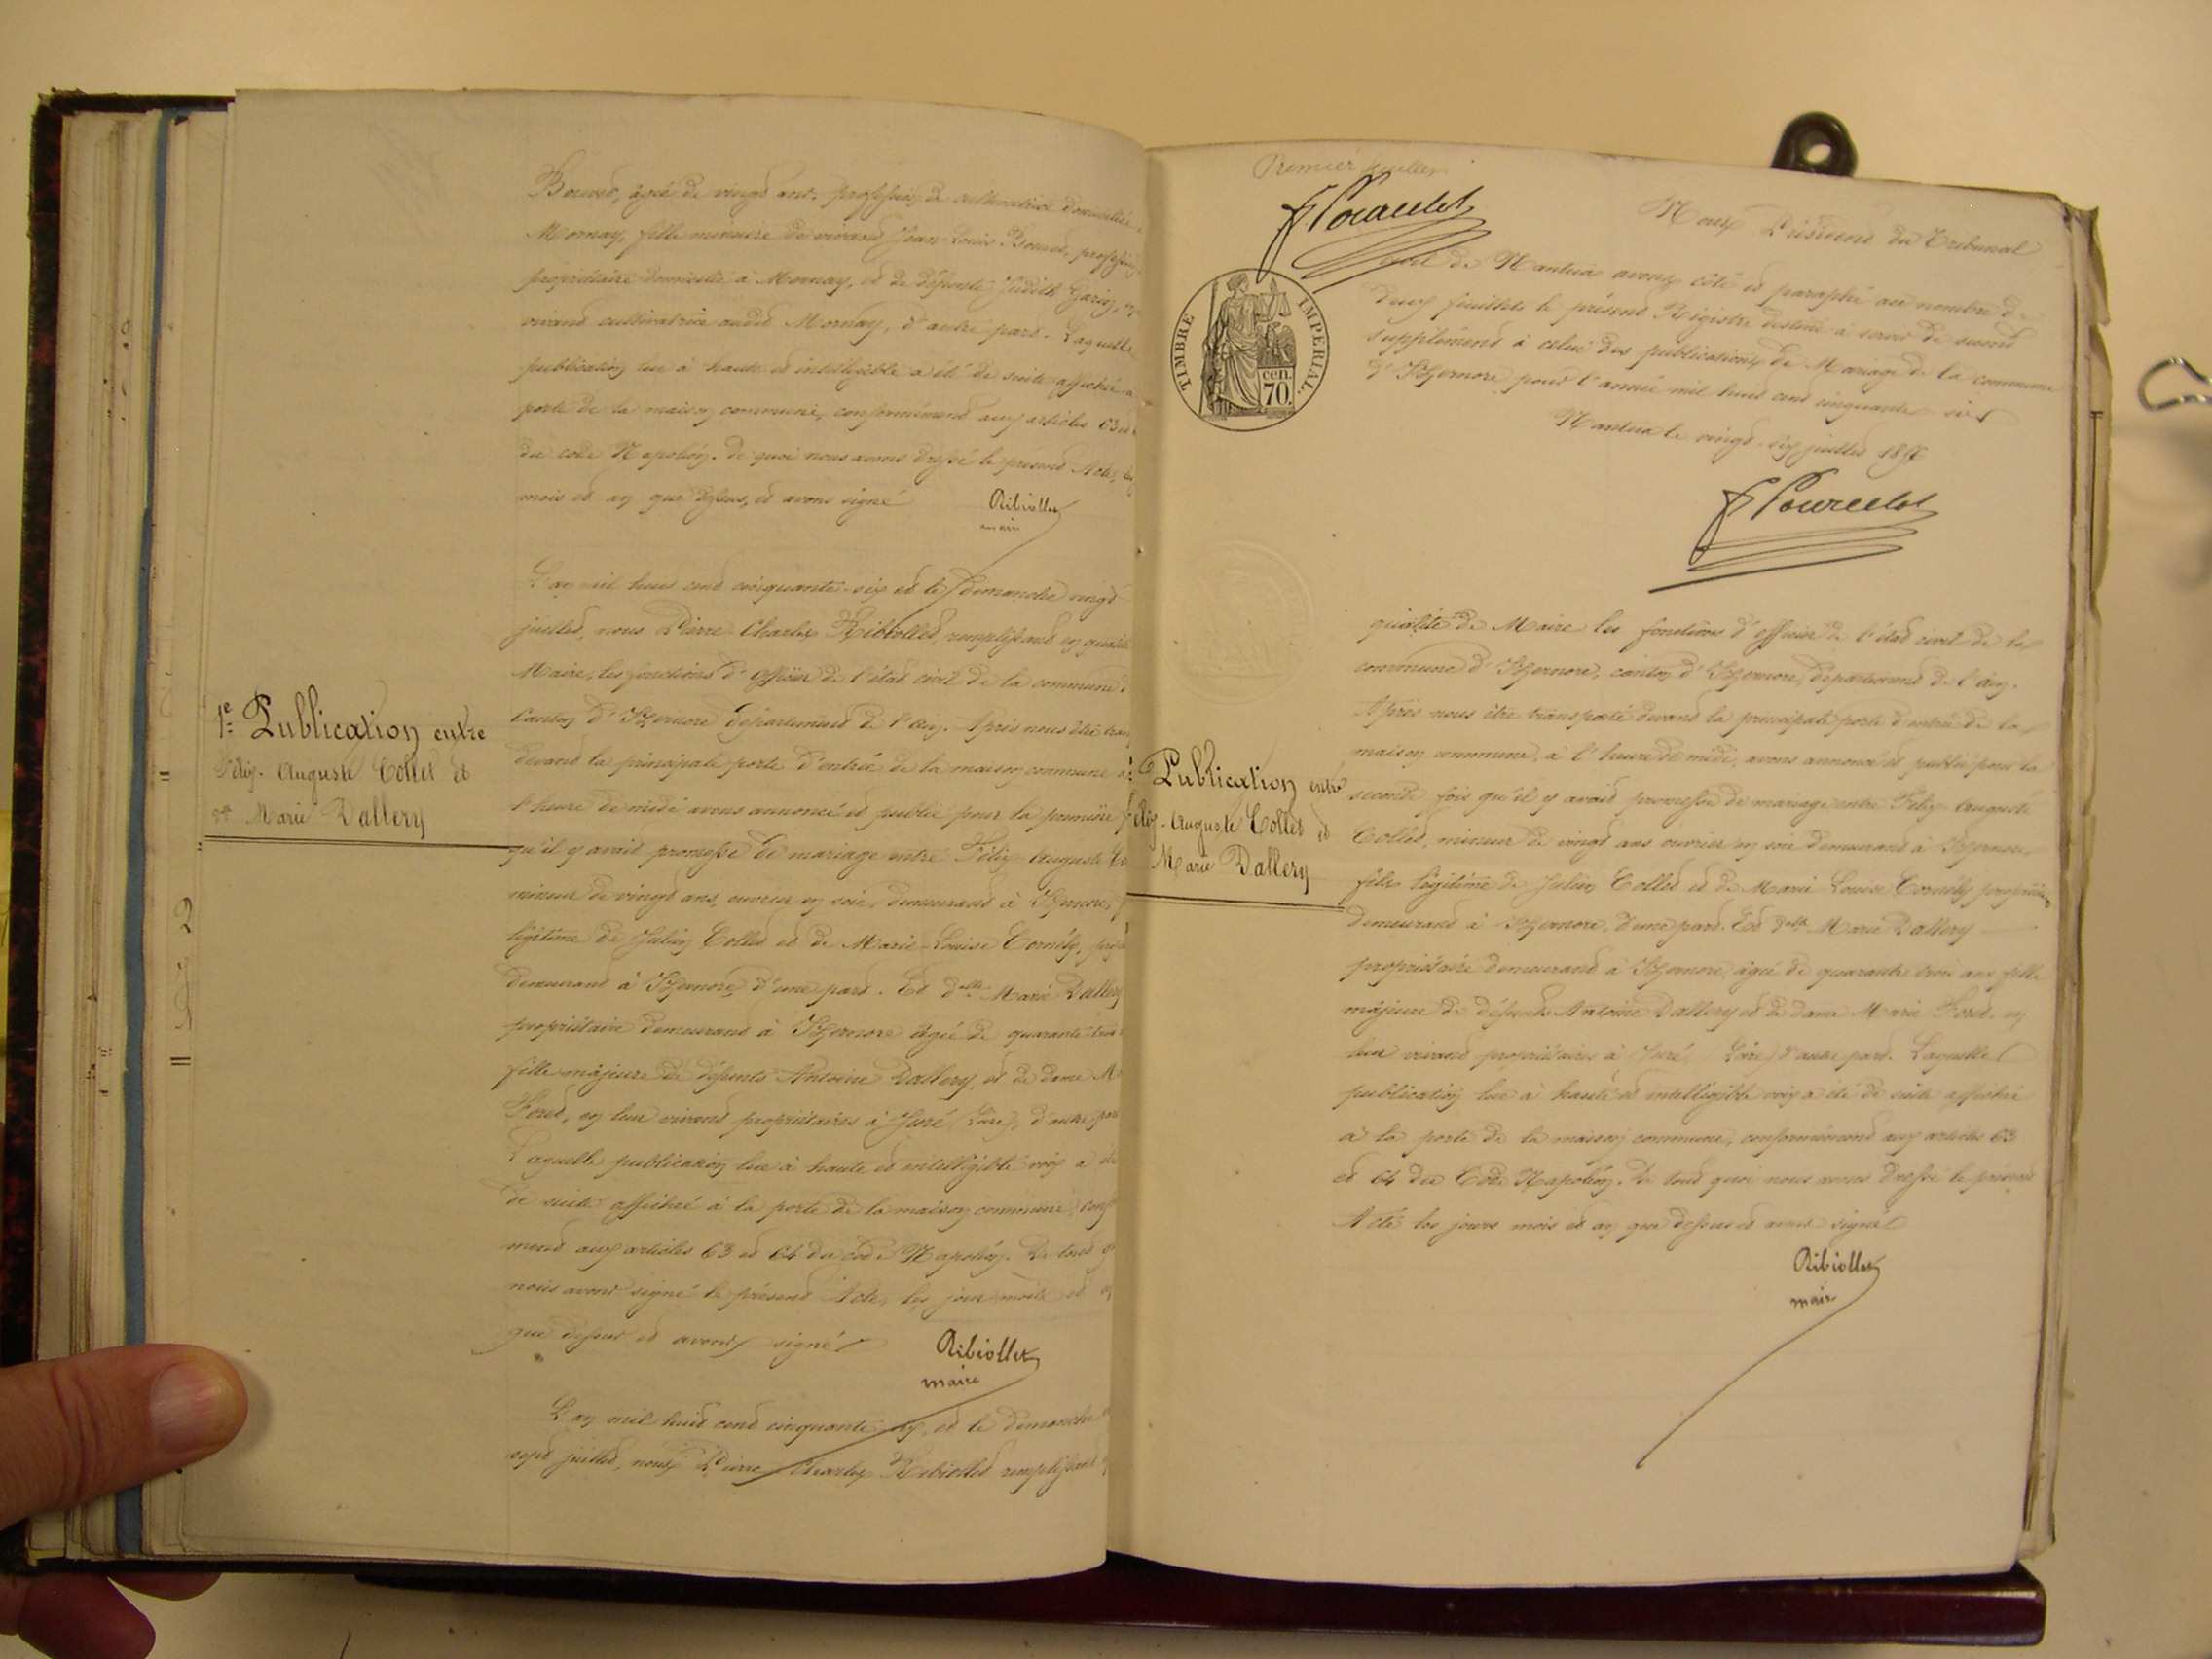 Bouvet, âgée de vingt ans, profession de cultivatrice domiciliée à
Mornay, fille mineure de vivant Jean-Louis Bouvet, profession
propriétaire domicilié à Mornay, et de défunte Judith Garin, en
vivant cultivatrice audit Mornay, d'autre part. Laquelle
publication lue à haute et intelligible a été de suite affichée à
porte de la maison commune, conformément aux articles 63 et
du code Napoléon. De quoi nous avons dressé le présent Acte, les
mois et an que dessus, et avons signé
Ribiollet
maire
L'an mil huit cent cinquante-six et le dimanche vingt
juillet, nous Pierre Charles Ribiollet, remplissant en qualité
Maire, les fonctions d'officier de l'état civil de la commune d
Canton d'Izernore département de l'Ain. Après nous être tran
devant la principale porte d'entrée de la maison commune à
l'heure de midi avons annoncé et publié pour la première f
qu'il y avait promesse de mariage entre Félix Auguste Co
mineur de vingt ans, ouvrier en soie, demeurant à Izernore, f
légitime de Julien Collet et de Marie-Louise Cornély, prop
demeurant à Izernore, d'une part. Et dlle Marie Dallery
propriétaire demeurant à Izernore âgée de quarante trois
fille majeure de défunts Antoine Dallery, et de dame M
en leur vivant propriétaires à Juré (Loire), d'autre part
Laquelle publication lue à haute et intelligible voix a été
de suite affichée à la porte de la maison commune, conf
ment aux articles 63 et 64 du Code Napoléon. De tout q
nous avons signé le présent Acte, les jour mois et an
que dessus et avons signé
Ribiollet
maire
L'an mil huit cent cinquante-six, et le dimanche
sept juillet, nous Pierre Charles Ribiollet remplissant
1e Publication entre
Félix-Auguste Collet et
Marie Dallery
2
Premier feuillet
F Pourcelot
Nous Président du Tribunal
civil de Nantua avons côté et paraphé au nombre de
deux feuillets le présent Registre destiné à servir de second
supplément à celui des publications de Mariage de la commune
d'Izernore pour l'année mil huit cent cinquante six
Nantua le vingt-six juillet 1856
F Pourcelot
TIMBRE IMPERIAL
cen. 70.
qualité de Maire les fonctions d'officier de l'état civil de la
commune d'Izernore, canton d'Izernore, département de l'Ain.
Après nous être transporté devant la principale porte d'entrée de la
maison commune, à l'heure de midi, avons annoncé et publié pour la
seconde fois qu'il y avait promesse de mariage entre Félix Auguste
Collet, mineur de vingt ans ouvrier en soie demeurant à Izernore,
fils légitime de Julien Collet et de Marie Louise Cornély propriétaires
demeurant à Izernore, d'une part. Et dlle Marie Dallery
propriétaire demeurant à Izernore, âgée de quarante trois ans fille
majeure de défunts Antoine Dallery et de dame Marie en
leur vivant propriétaires à Juré (Loire) d'autre part. Laquelle
publication lue à haute et intelligible voix a été de suite affichée
à la porte de la maison commune, conformément aux articles 63
et 64 du Code Napoléon. De tout quoi nous avons dressé le présent
Acte les jours mois et an que dessus et avons signé
Ribiollet
maire
Publication entre
Félix-Auguste Collet et
Marie Dallery